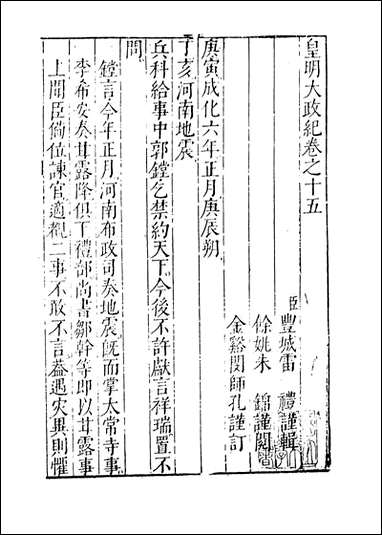 皇明大政紀卷之十五
臣豐城雷 禮謹輯
餘姚朱 錦謹閱
金谿閔師孔謹訂
庚寅成化六年正月庚辰朔
丁亥河南地震
兵科給事中郭鏜乞禁約天下今後不許獻言祥瑞置不
問
鏜言今年正月河南布政司奏地震旣而掌太常寺事
李希安奏甘露降俱下禮部尚書鄒幹等即以甘露事
上聞臣僃位諫官適觀二事不敢不言葢遇灾異則懼